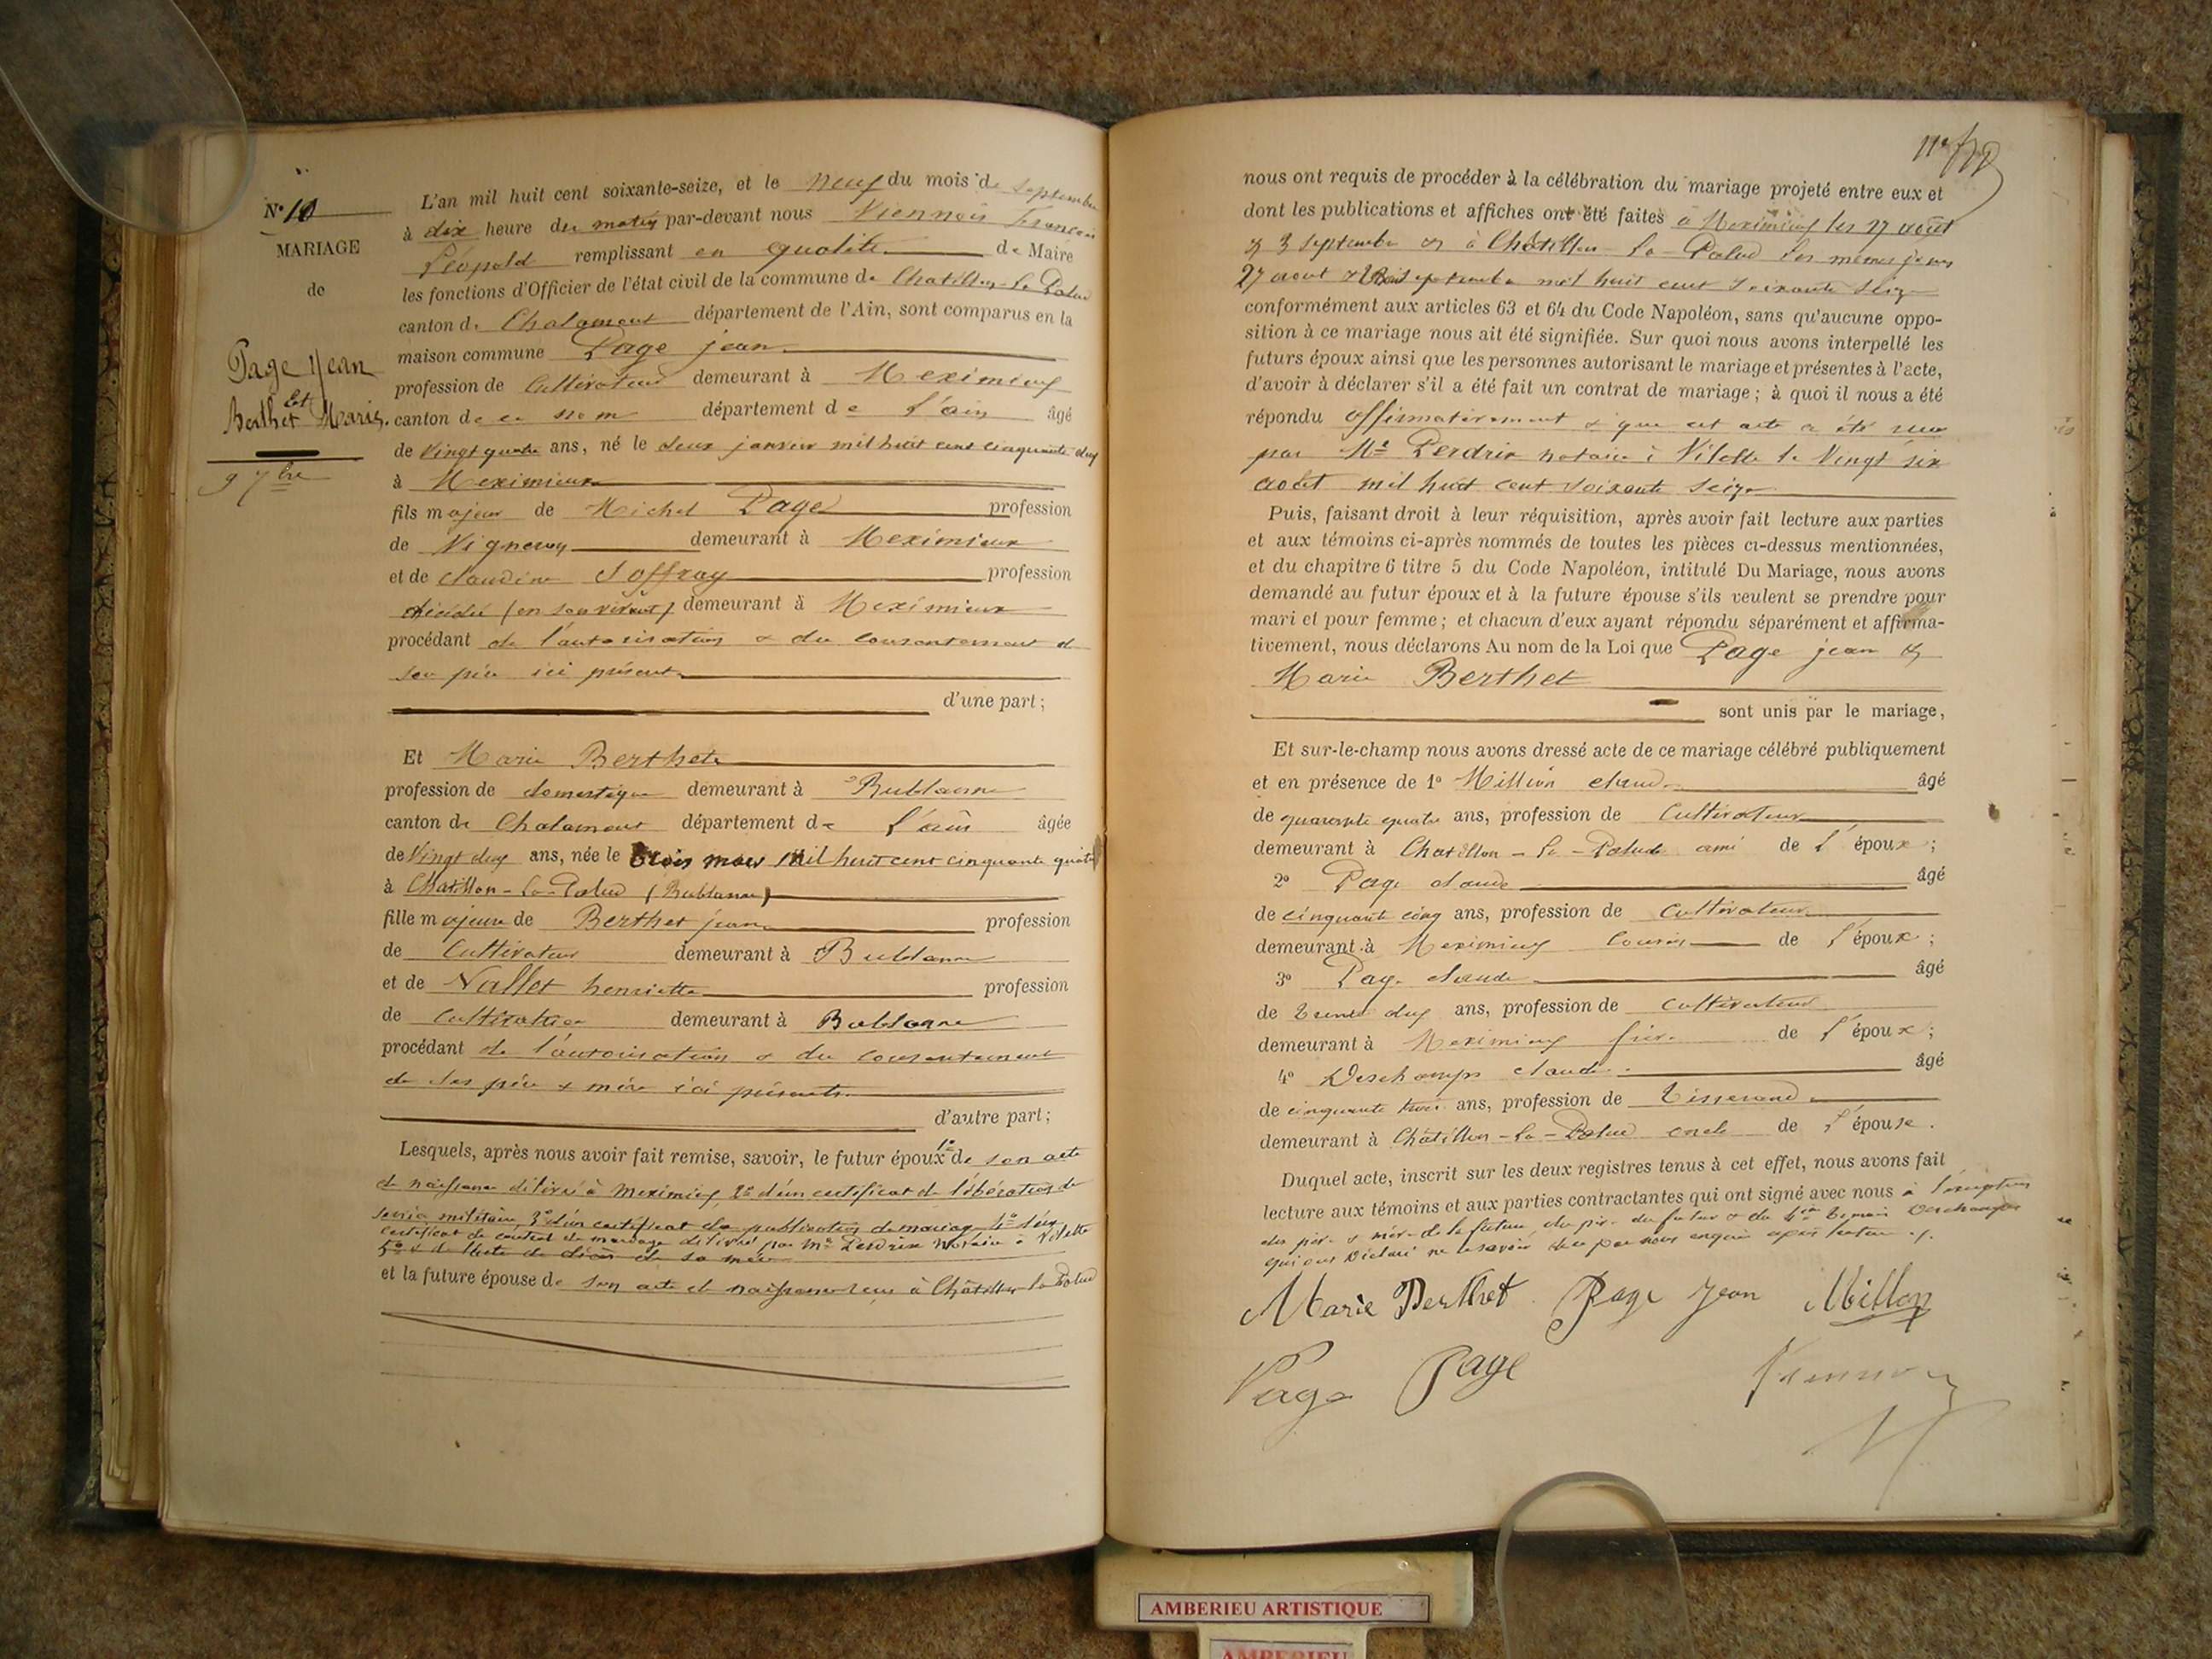 N° 10
MARIAGE
de
Page Jean
Et
Berthet Marie.
9 7bre
L'an mil huit cent soixante-seize, et le neuf du mois de Septembre
à dix heure du matin par-devant nous Viennois françois
Léopold remplissant en qualité de Maire
les fonctions d'Officier de l'état civil de la commune de Chatillon-la-Palud
canton de Chalamont département de l'Ain, sont comparus en la
maison commune Page jean
profession de Cultivateur demeurant à Meximieux
canton de ce nom département de l'ain âgé
de Vingt quatre ans, né le deux janvier mil huit cent cinquante deux
à Meximieux
fils majeur de Michel Page profession
de Vigneron demeurant à Meximieux
et de claudine Joffray profession
décédée (en son vivant) demeurant à Meximieux
procédant de l'autorisation & du consentement de
son père ici présent
d'une part;
Et Marie Berthet
profession de domestique demeurant à Bublanne
canton de Chalamont département de l'ain âgée
de Vingt deux ans, née le trois mars mil huit cent cinquante quatre
à Chatillon-la-Palud (Bublanne)
fille majeure de Berthet jean profession
de Cultivateur demeurant à Bublanne
et de Vallet henriette profession
de Cultivatrice demeurant à Bublanne
procédant de l'autorisation & du consentement
de ses père & mère ici présents
d'autre part;
Lesquels, après nous avoir fait remise, savoir, le futur époux 1° de son acte
de naissance délivré à meximieux 2° d'un certificat de libération du
service militaire, 3° d'un certificat de publication de mariage 4° d'un
certificat de contrat de mariage délivré par Me Perdrix Notaire à Vilette
5° & de l'acte de décès de sa mère
et la future épouse de son acte de naissance reçu à Châtillon la Palud
nous ont requis de procéder à la célébration du mariage projeté entre eux et
dont les publications et affiches ont été faites à Meximieux les 27 août
& 3 Septembre & à Châtillon-la-Palud les mêmes jours
27 aout & trois septembre mil huit cent soixante seize
conformément aux articles 63 et 64 du Code Napoléon, sans qu'aucune oppo-
sition à ce mariage nous ait été signifiée. Sur quoi nous avons interpellé les
futurs époux ainsi que les personnes autorisant le mariage et présentes à l'acte,
d'avoir à déclarer s'il a été fait un contrat de mariage; à quoi il nous a été
répondu affirmativement & que cet acte a été reçu
par Me Perdrix notaire à Vilette le Vingt six
août mil huit cent soixante seize
Puis, faisant droit à leur réquisition, après avoir fait lecture aux parties
et aux témoins ci-après nommés de toutes les pièces ci-dessus mentionnées,
et du chapitre 6 titre 5 du Code Napoléon, intitulé Du Mariage, nous avons
demandé au futur époux et à la future épouse s'ils veulent se prendre pour
mari et pour femme; et chacun d'eux ayant répondu séparément et affirma-
tivement, nous déclarons Au nom de la Loi que Page jean &
Marie Berthet
sont unis par le mariage,
Et sur-le-champ nous avons dressé acte de ce mariage célébré publiquement
et en présence de 1° Million claude âgé
de quarante quatre ans, profession de Cultivateur
demeurant à Chatillon-la-Palud ami de l'époux;
2° Page claude âgé
de cinquante cinq ans, profession de Cultivateur
demeurant à Meximieux Cousin de l'époux;
3° Page claude âgé
de trente deux ans, profession de cultivateur
demeurant à Meximieux frère de l'époux;
4° Deschamps claude âgé
de cinquante trois ans, profession de Tisserand
demeurant à Châtillon-la-Palud oncle de l'épouse.
Duquel acte, inscrit sur les deux registres tenus à cet effet, nous avons fait
lecture aux témoins et aux parties contractantes qui ont signé avec nous à l'exception
des père & mère de la future, du père du futur & du 4me témoin Deschamps
qui ont déclaré ne le savoir de ce par nous enquis après lecture
Marie Berthet Page Jean Millon
Page Page Viennois
AMBERIEU ARTISTIQUE
AMBERIEU